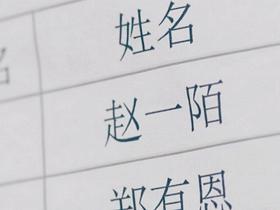 姓名
名
赵一陌
郑有恩